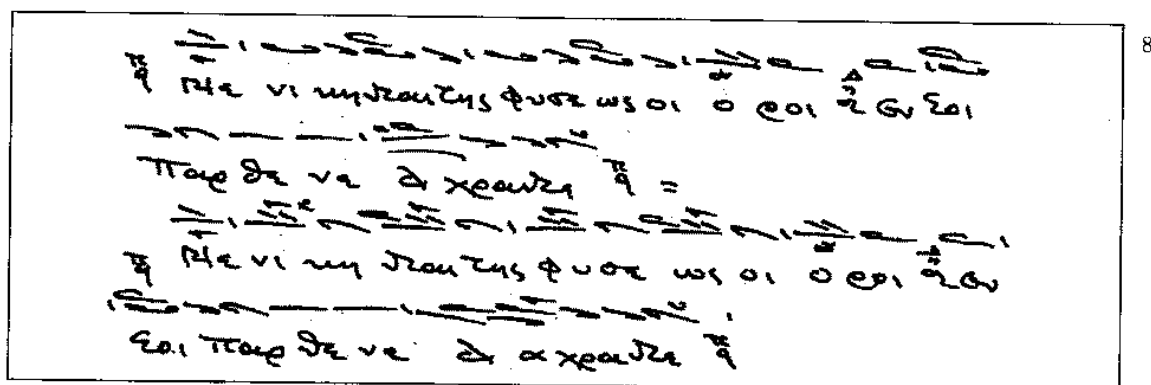 Νε νι κην ται της φυσε ως οι ο ροι εν σοι
Παρ θε νε α χραντε
Νε νι κην ται της φυσε ως οι ο ροι εν
σοι Παρ θε νε α α χραντε
8